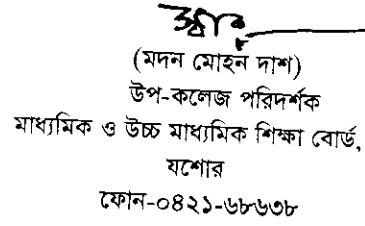 (মদন মোহন দাশ)
উপ-কলেজ পরিদর্শক
মাধ্যমিক ও উচ্চ মাধ্যমিক শিক্ষা বোর্ড,
যশোর
ফোন-০৪২১-৬৮৬৩৮